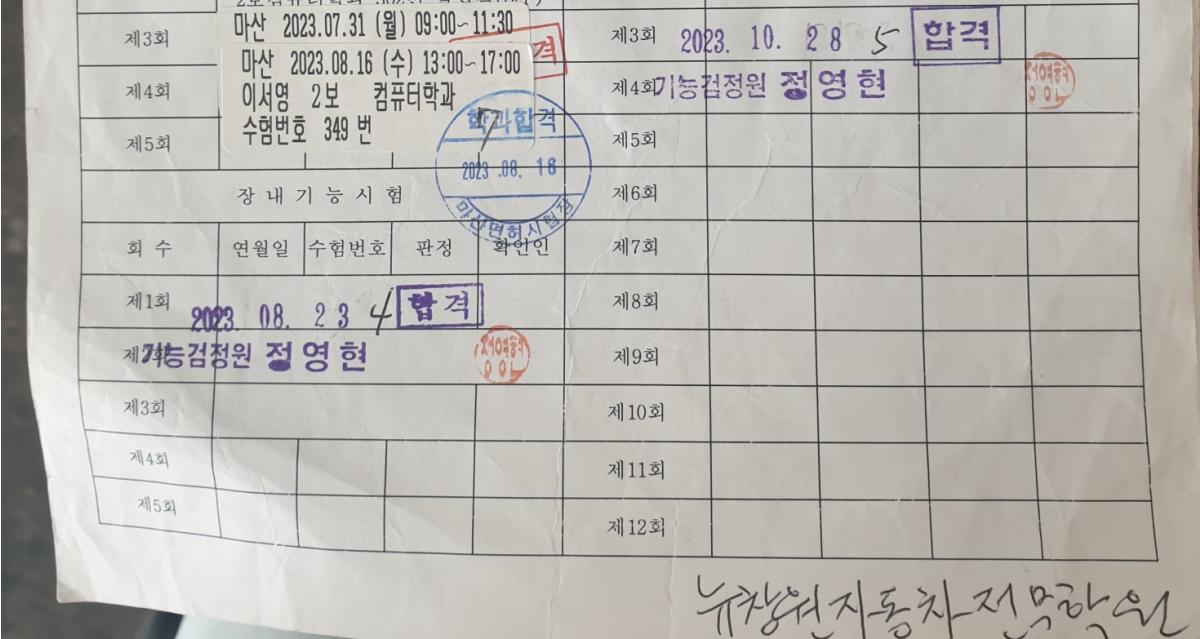 마산 2023.07.31 (월) 09:00~11:30
제3회
격
마산 2023.08.16 (수) 13:00~17:00
제4회
이서영 2보 컴퓨터학과
수험번호 349 번
제5회
학과합격
2023.08.16
마산면허시험장
장내기능시험
회 수 연월일 수험번호 판정 확인인
제1회 2023. 08. 23 4 합격
제2회 기능검정원 정영현
제3회
제4회
제5회
제3회 2023. 10. 28 5 합격
제4회 기능검정원 정영현
제5회
제6회
제7회
제8회
제9회
제10회
제11회
제12회
뉴창원자동차전문학원